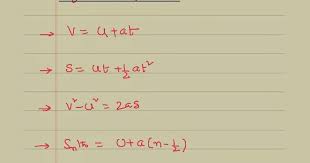 → V = u + at
→ S = ut + ½ at²
→ v² - u² = 2as
→ Sₙth = U + a(n - ½)